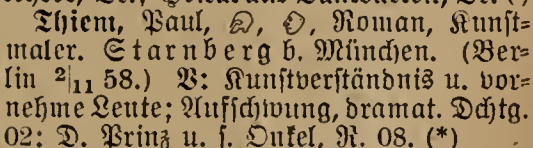 Thiem, Paul, Roman, Kunst=
maler. Starnberg b. München. (Ber=
lin 2/11 58.) V: Kunstverständnis u. vor=
nehme Leute; Aufschwung, dramat. Dchtg.
02; D. Prinz u. s. Onkel, R. 08. (*)